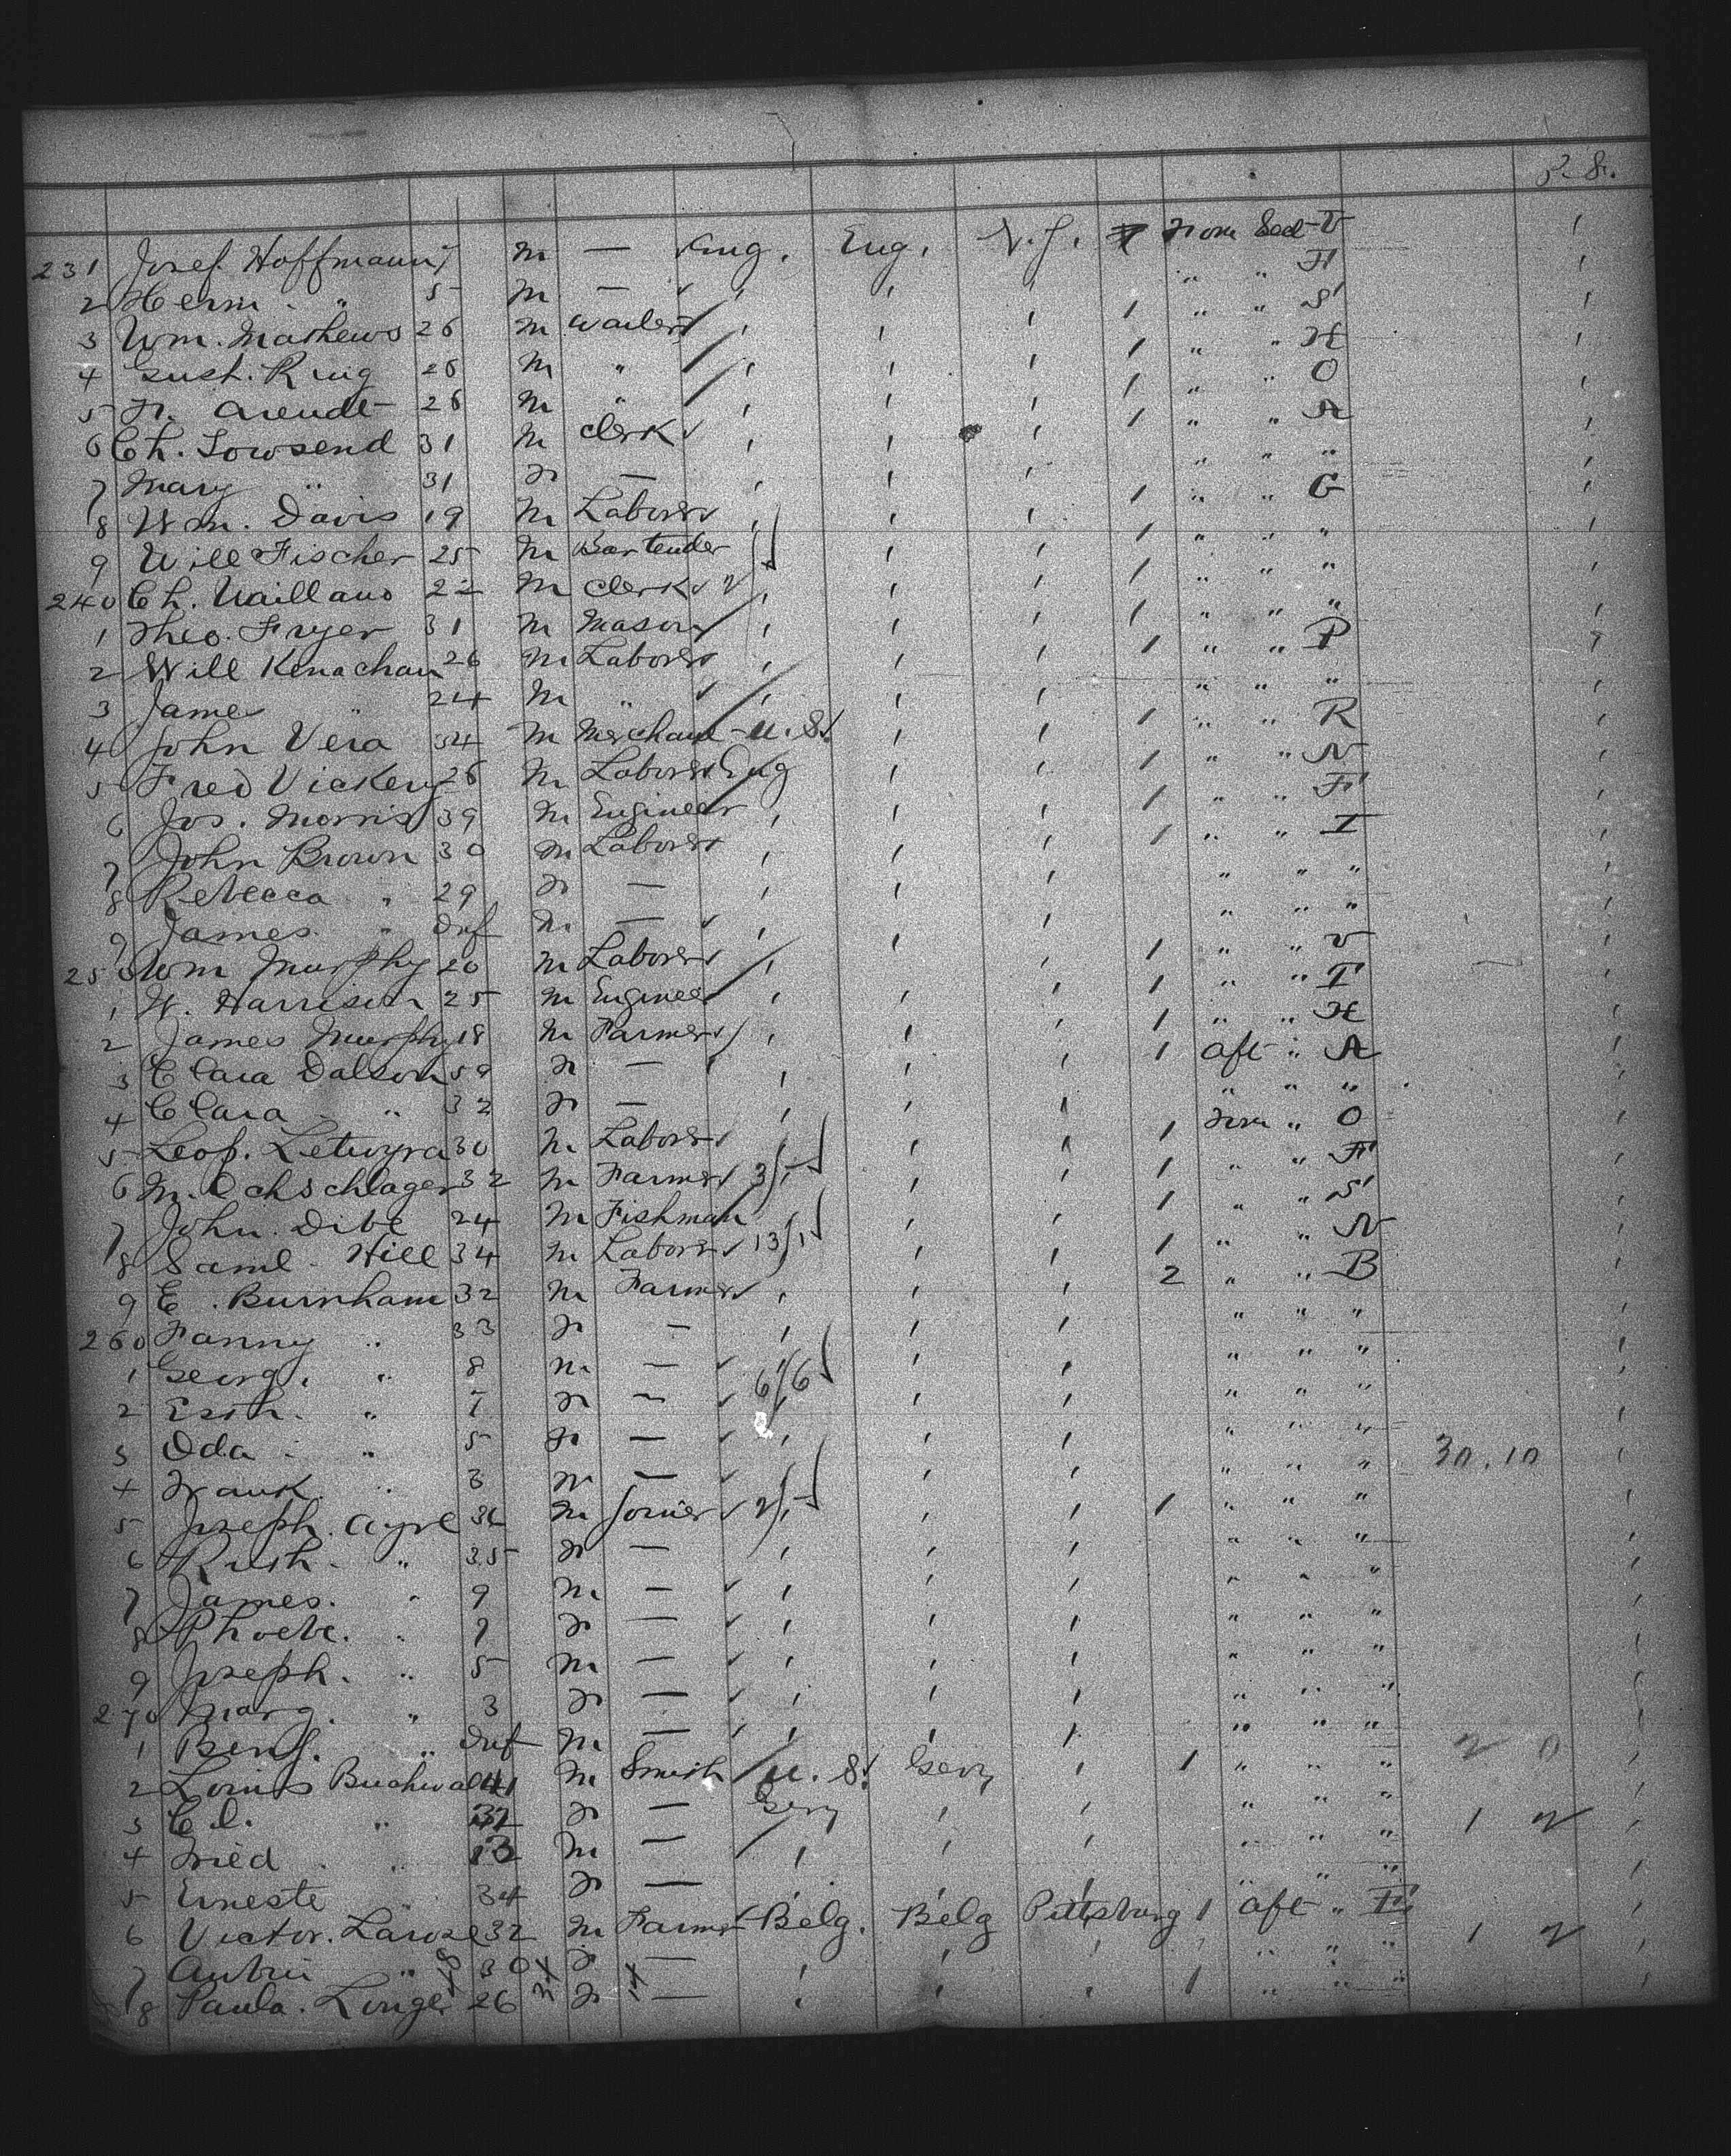 P. S.
231 Josef. Hoffmann 7 m — Eng. Eng. N.Y. From Sect V
2 Herm. " 5 m — " " F
3 Wm. Mathews 26 m Waiter 1 " " S
4 Gust. Ring 28 m " 1 " " H
5 Fr. Arendt 28 m " 1 " " O
6 Ch. Towsend 31 m Clerk 1 " " A
7 Mary " 31 F — " " "
8 Wm. Davis 19 m Laborer 1 " " G
9 Will Fischer 25 m Bartender 1 " " "
240 Ch. Vaillans 22 m Clerk 1 " " "
1 Theo. Fryer 31 m Mason 1 " " "
2 Will Kenachan 26 m Laborer 1 " " P
3 James " 24 m " " " "
4 John Vera 34 m Merchant U.S. 1 " " R
5 Fred Vickery 28 m Laborer Eng 1 " " N
6 Jos. Morris 39 m Engineer 1 " " F
7 John Brown 30 m Laborer 1 " " I
8 Rebecca " 29 F — " " "
9 James " Inf m — " " "
250 Wm Murphy 20 m Laborer 1 " " V
1 W. Harrison 25 m Engineer 1 " " T
2 James Murphy 18 m Farmer 1 " " H
3 Clara Dalson 59 F — 1 Aft " A
4 Clara " 32 F — " " "
5 Leop. 30 m Laborer 1 From " O
6 M. Ochschlager 32 m Farmer 1 " " F
7 John. Dibe 24 m Fishman 1 " " S
8 Saml. Hill 34 m Laborer 1 " " N
9 E. Burnham 32 m Farmer 2 " " B
260 Fanny " 33 F — " " "
1 Georg. " 8 m — 6/6 " " "
2 Esth. " 7 F — " " "
3 Ida " 5 F — " " "
4 Frank. " 3 m — " " " 30.10
5 Joseph. Ayre 36 m Joiner 1 " " "
6 Ruth. " 35 F — " " "
7 James. " 9 m — " " "
8 Phoebe. " 7 F — " " "
9 Joseph. " 5 m — " " "
270 Marg. " 3 F — " " "
1 Benj. " Inf m — " " "
2 Louis Buchwald 41 m Smith U.S. Gery 1 " " " 2 0
3 C. L. " 32 F — Gery " " "
4 Fried. " 13 m — " " " 1 2
5 Erneste " 34 F — " " "
6 Victor. Larose 32 m Farmer Belg. Belg Pittsburg 1 Aft " E
7 " 30 F — " " " 1 2
8 Paula. Linger 26 F — 1 " " "